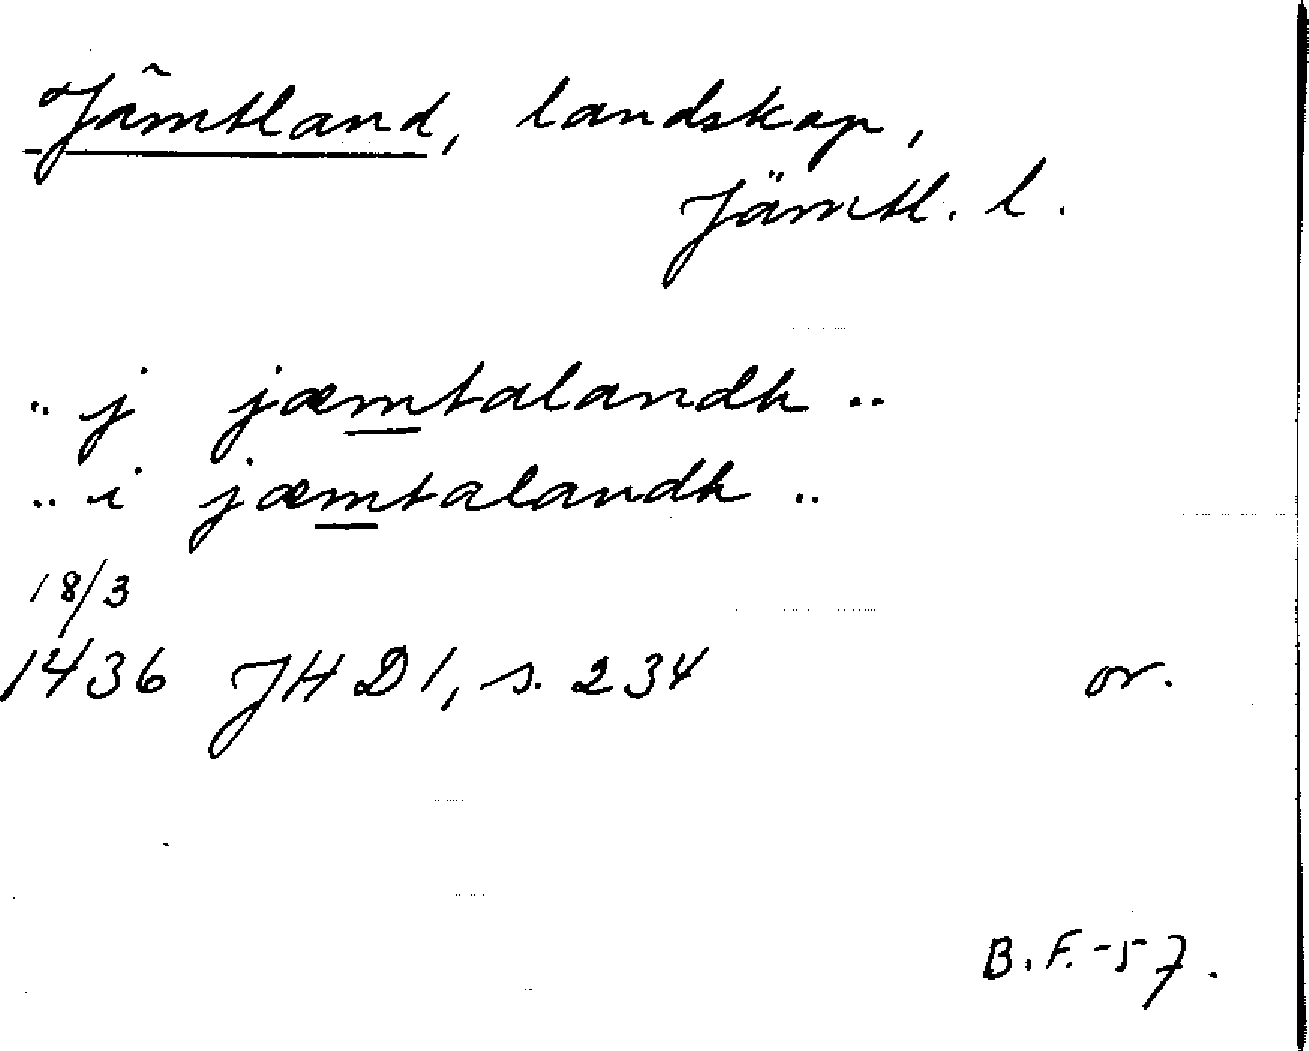 Jämtland, landskap,
Jämtl. l.
.. j jæmtalandh ..
.. i jæmtalandh ..
18/3
1436 JHD 1, s. 234 or.
B.F.-57.